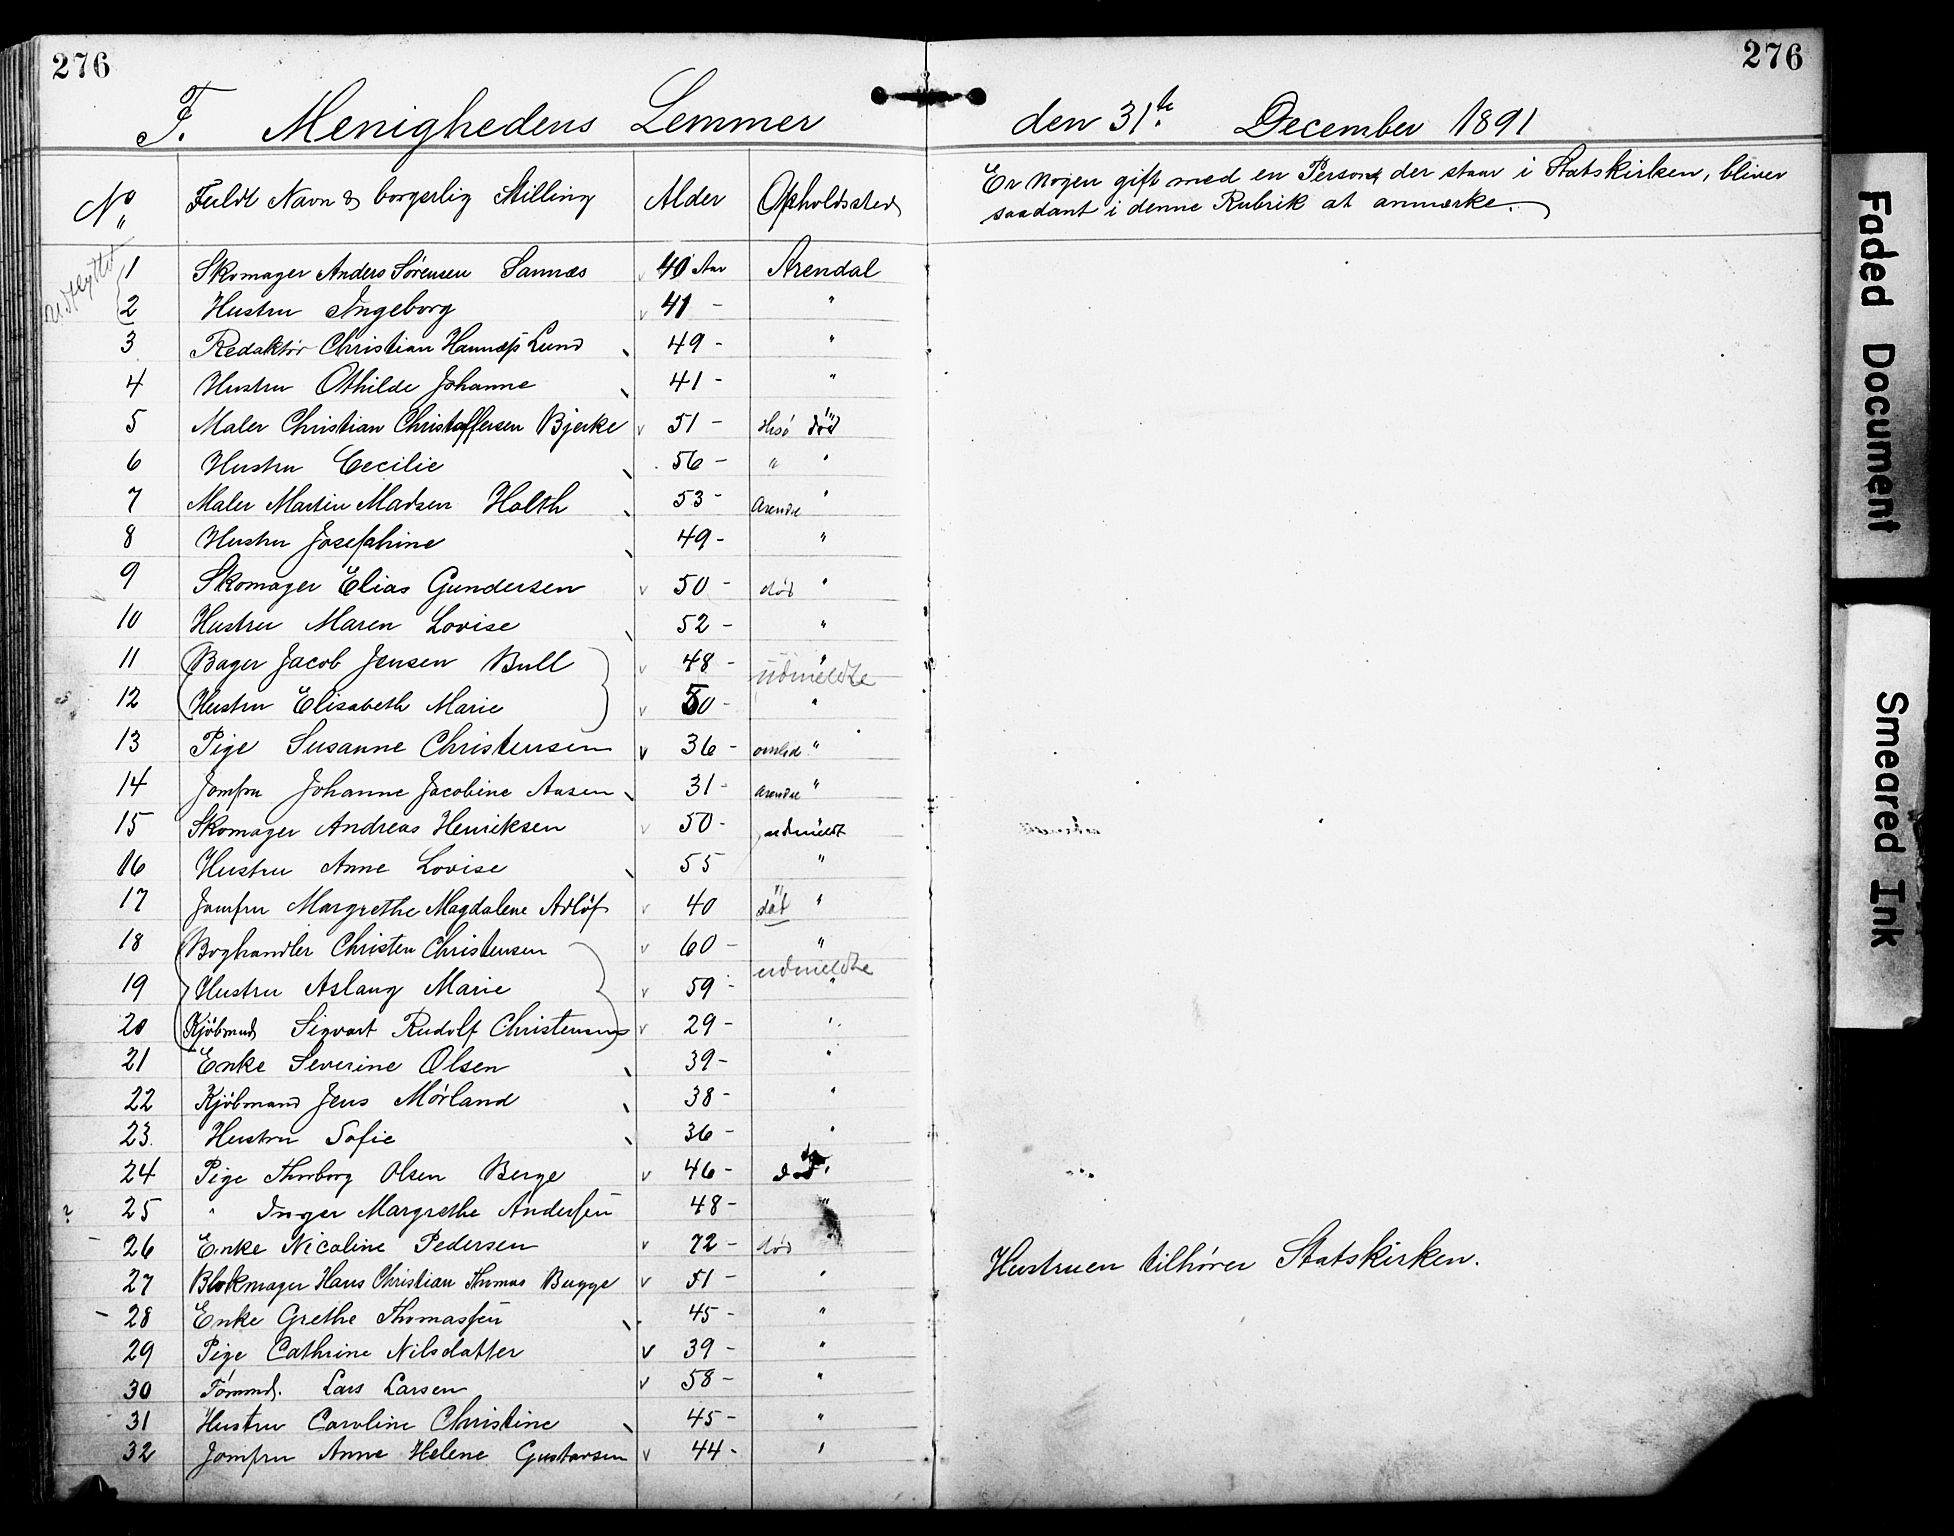 276
276
F. Menighedens Lemmer den 31te December 1891
No Fuldt Navn & borgerlig Stilling Alder Opholdssted Er nogen gift med en Person der staar i Statskirken, bliver
saadant i denne Rubrik at anmærke.
udflyttet
1 Skomager Anders Sørensen Sannæs v 40 Aar Arendal
2 Hustru Ingeborg v 41 - "
3 Redaktør Christian Lund 49 - "
4 Hustru Othilde Johanne 41 - "
5 Maler Christian Christoffersen Bjerke v 51 - Hisø død "
6 Hustru Cecilie 56 - " "
7 Maler Martin Madsen Holth 53 - "
8 Hustru Josephine 49 - "
9 Skomager Elias Gundersen v 50 - død "
10 Hustru Maren Lovise 52 - "
11 Bager Jacob Jensen Bull v 48 - "
udmeldte
12 Hustru Elisabeth Marie v 50 - "
13 Pige Susanne Christensen v 36 - "
14 Jomfru Johanne Jacobine Aasen 31 - "
15 Skomager Andreas Henriksen v 50 - udmeldt
16 Hustru Anne Lovise 55 "
17 Jomfru Margrethe Magdalene Adløf v 40 død "
18 Boghandler Christen Christensen v 60 - "
udmeldte
19 Hustru Aslaug Marie v 59 - "
20 Kjøbmand Sigvart Rudolf Christensen v 29 - "
21 Enke Severine Olsen 39 - "
22 Kjøbmand Jens Mørland 38 - "
23. Hustru Sofie 36 - "
24 Pige Thorborg Olsen Berge v 46 - død "
? 25 " Inger Margrethe Andersen 48 - "
- 26 Enke Nicoline Pedersen v 72 - død "
27 Blokmager Hans Christian Thomas Bugge v 51 - " Hustruen tilhører Statskirken.
- 28 Enke Grethe Thomassen 45 - "
29 Pige Cathrine Nilsdatter v 39 - "
30 Tømmd. Lars Larsen v 58 - "
31 Hustru Caroline Christine 45 - "
32 Jomfru Anne Helene Gustavsen v 44 - "
Faded Document
Smeared Ink